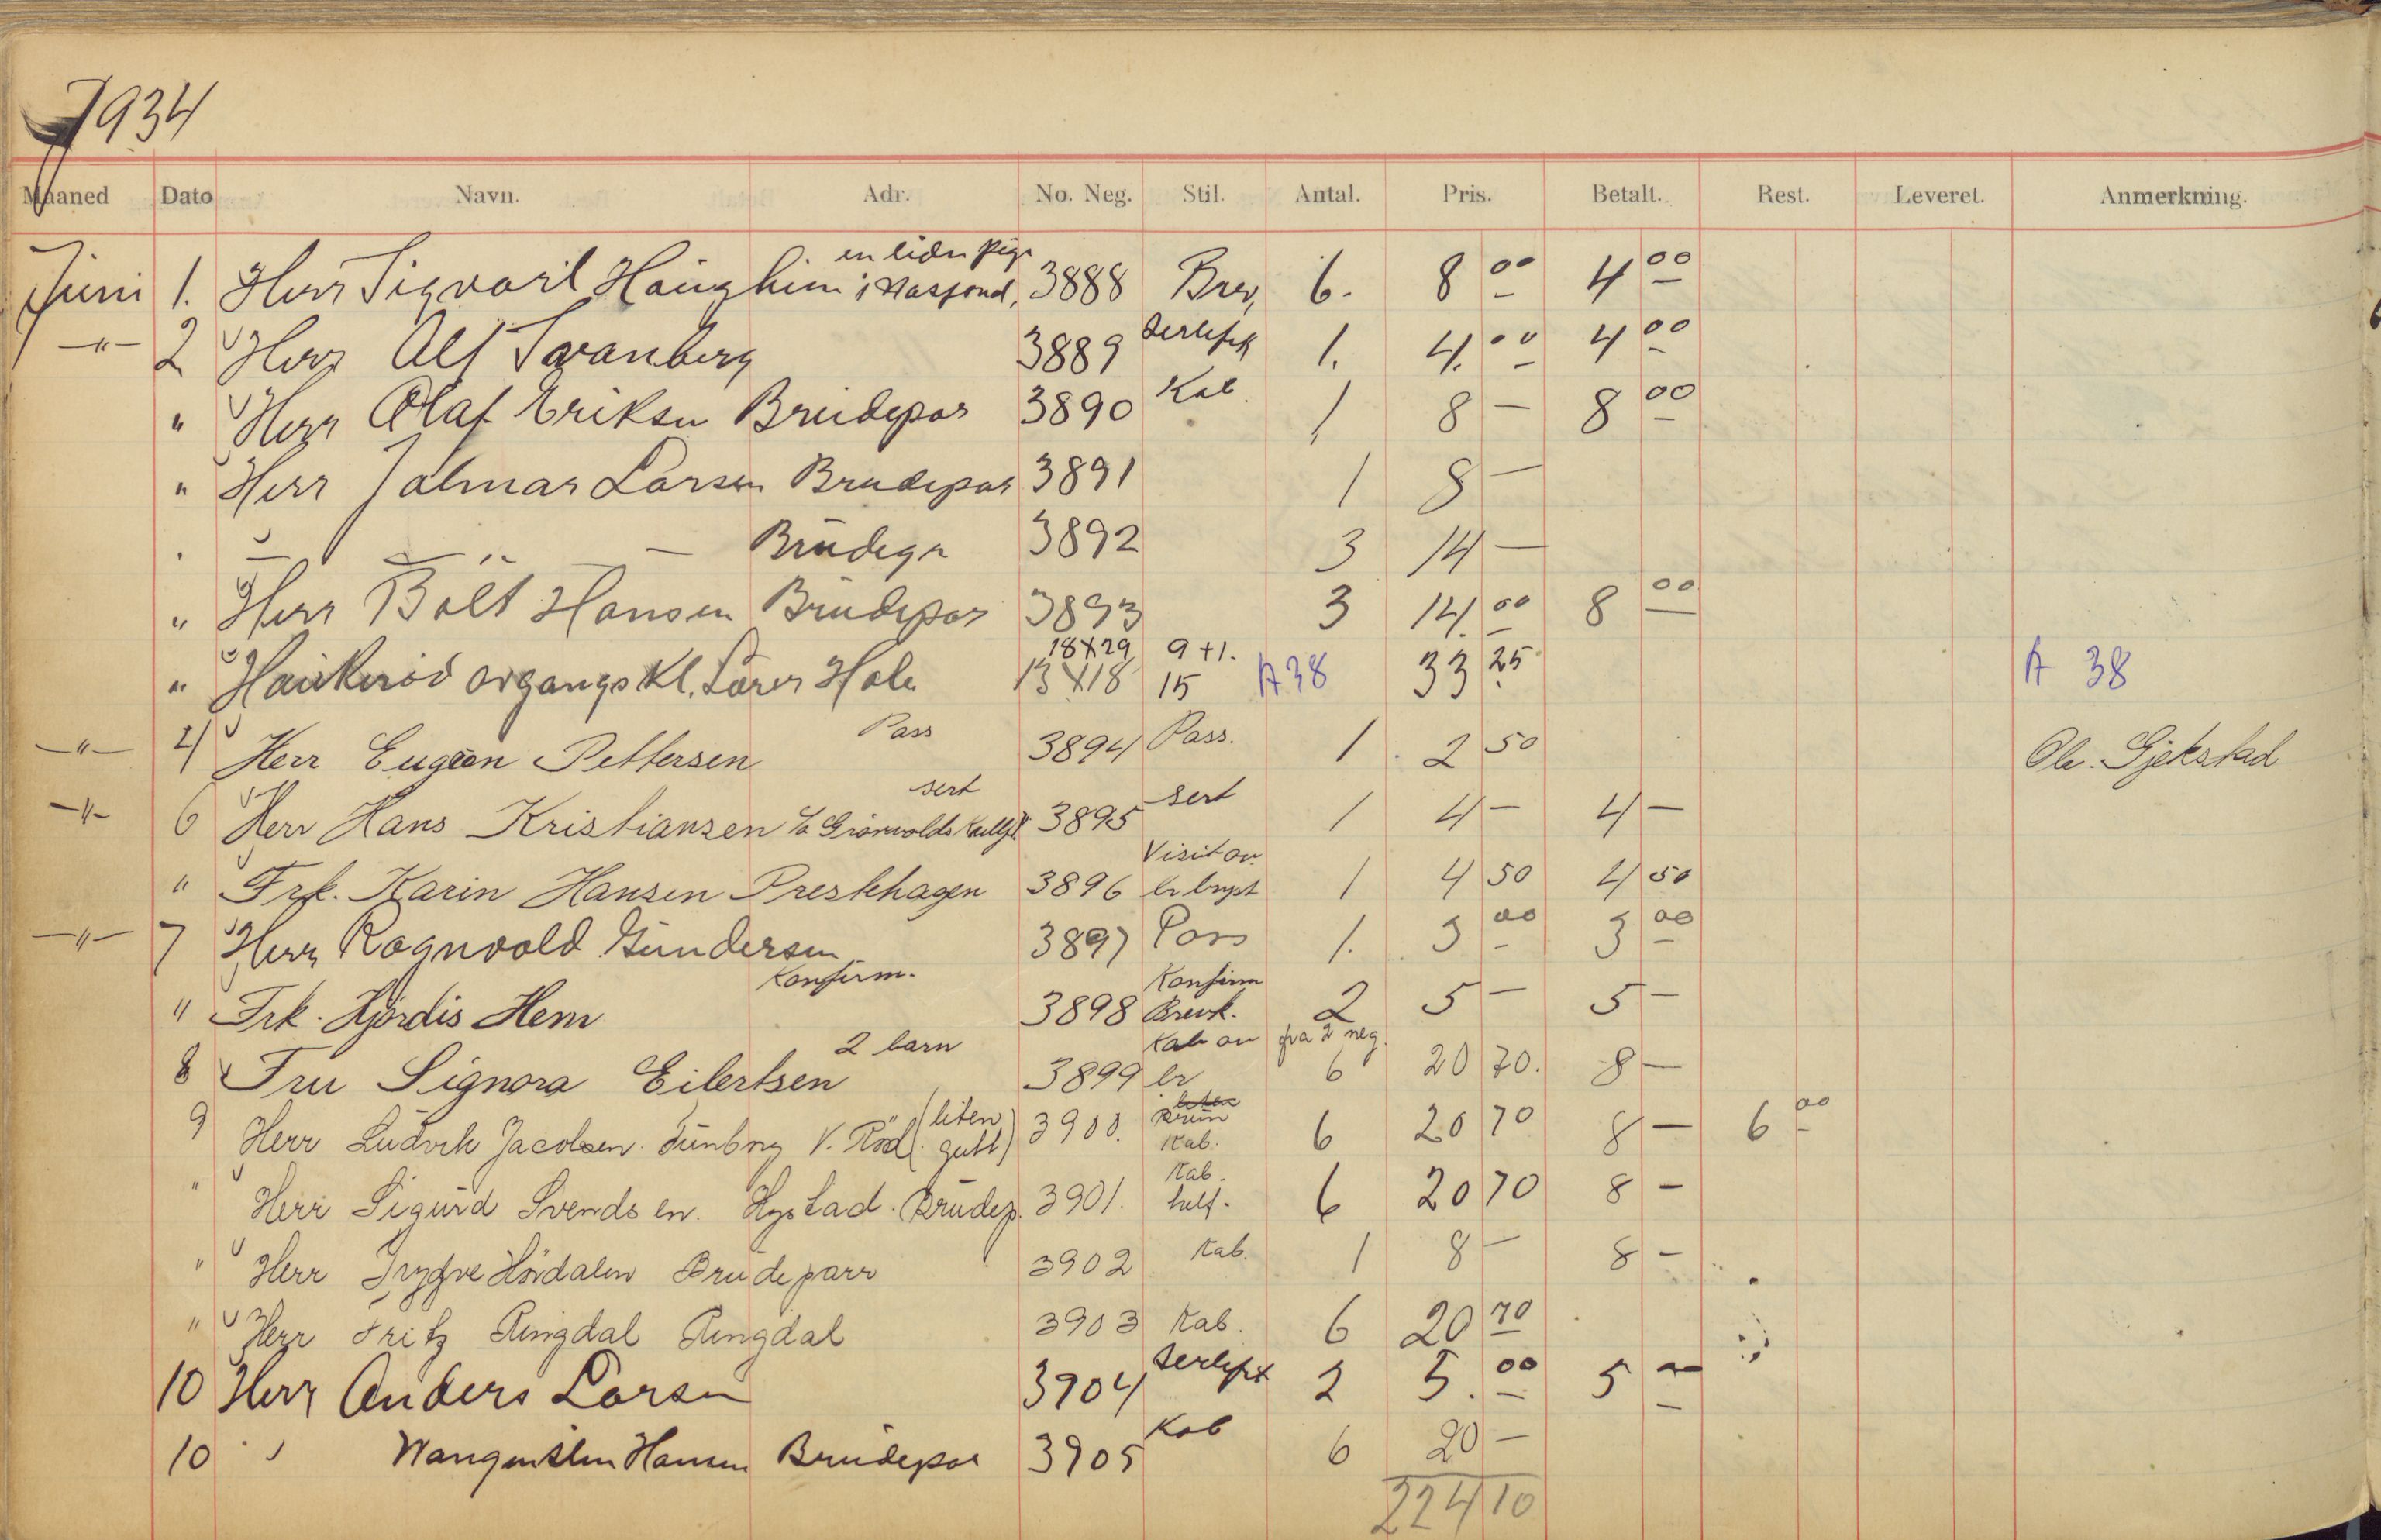 1934
Maaned Dato Navn. Adr. No. Neg. Stil. Antal. Pris. Betalt. Rest. Leveret. Anmerkning.
en liden pige
Juni 1. Herr Sigvart Haughem i 3888 Brev, 6. 8 00 4 00
-"- 2 Herr Alf Svanberg 3889 Sertifik 1. 4. 00 4 00
" Herr Olaf Eriksen Brudepar 3890 Kab. 1 8 — 8 00
" Herr Jalmar Larsen Brudepar 3891 1 8 —
— " — Brudepr 3892 3 14 —
" Herr Bølt Hansen Brudepar 3893 3 14. 00 8 00
18X29 9+1.
" Haukerød avgangskl. Lærer Holm 13X18 15 A38 33 25 A 38
-"- 4 Herr Eugen Pettersen Pass 3894 Pass. 1 2 50 Ole. Gjekstad
-"- 6 Herr Hans Kristiansen sert 3895 sert 1 4 — 4 —
Visit ov.
" Frk. Karin Hansen Prestehagen 3896 br bryst 1 4 50 4 50
-"- 7 Herr Ragnvald Gundersen 3897 Pass 1. 3 00 3 00
Konfirm. Konfirm
" Frk. Hjørdis Hem 3898 Brevk. 2 5 — 5 —
2 barn Kab ov fra 2 neg.
8 Fru Signora Eilertsen 3899 br 6 20 70. 8 —
9 Herr Ludvik Jacobsen. Tunbry V. Rød (liten gutt) 3900. Brun Kab. 6 20 70 8 — 6 00
" Herr Sigurd Svendsen. Hystad. Brudep. 3901. Kab. helf. 6 20 70 8 —
" Herr Trygve Hørdalen Brudeparr 3902 Kab. 1 8 — 8 —
" Herr Fritz Ringdal Ringdal 3903 Kab. 6 20 70
10 Herr Anders Larsen 3904 Sertifik 2 5. 00 5 —
10 " Wangensten Hansen Brudepar 3905 Kab 6 20 —
224 10